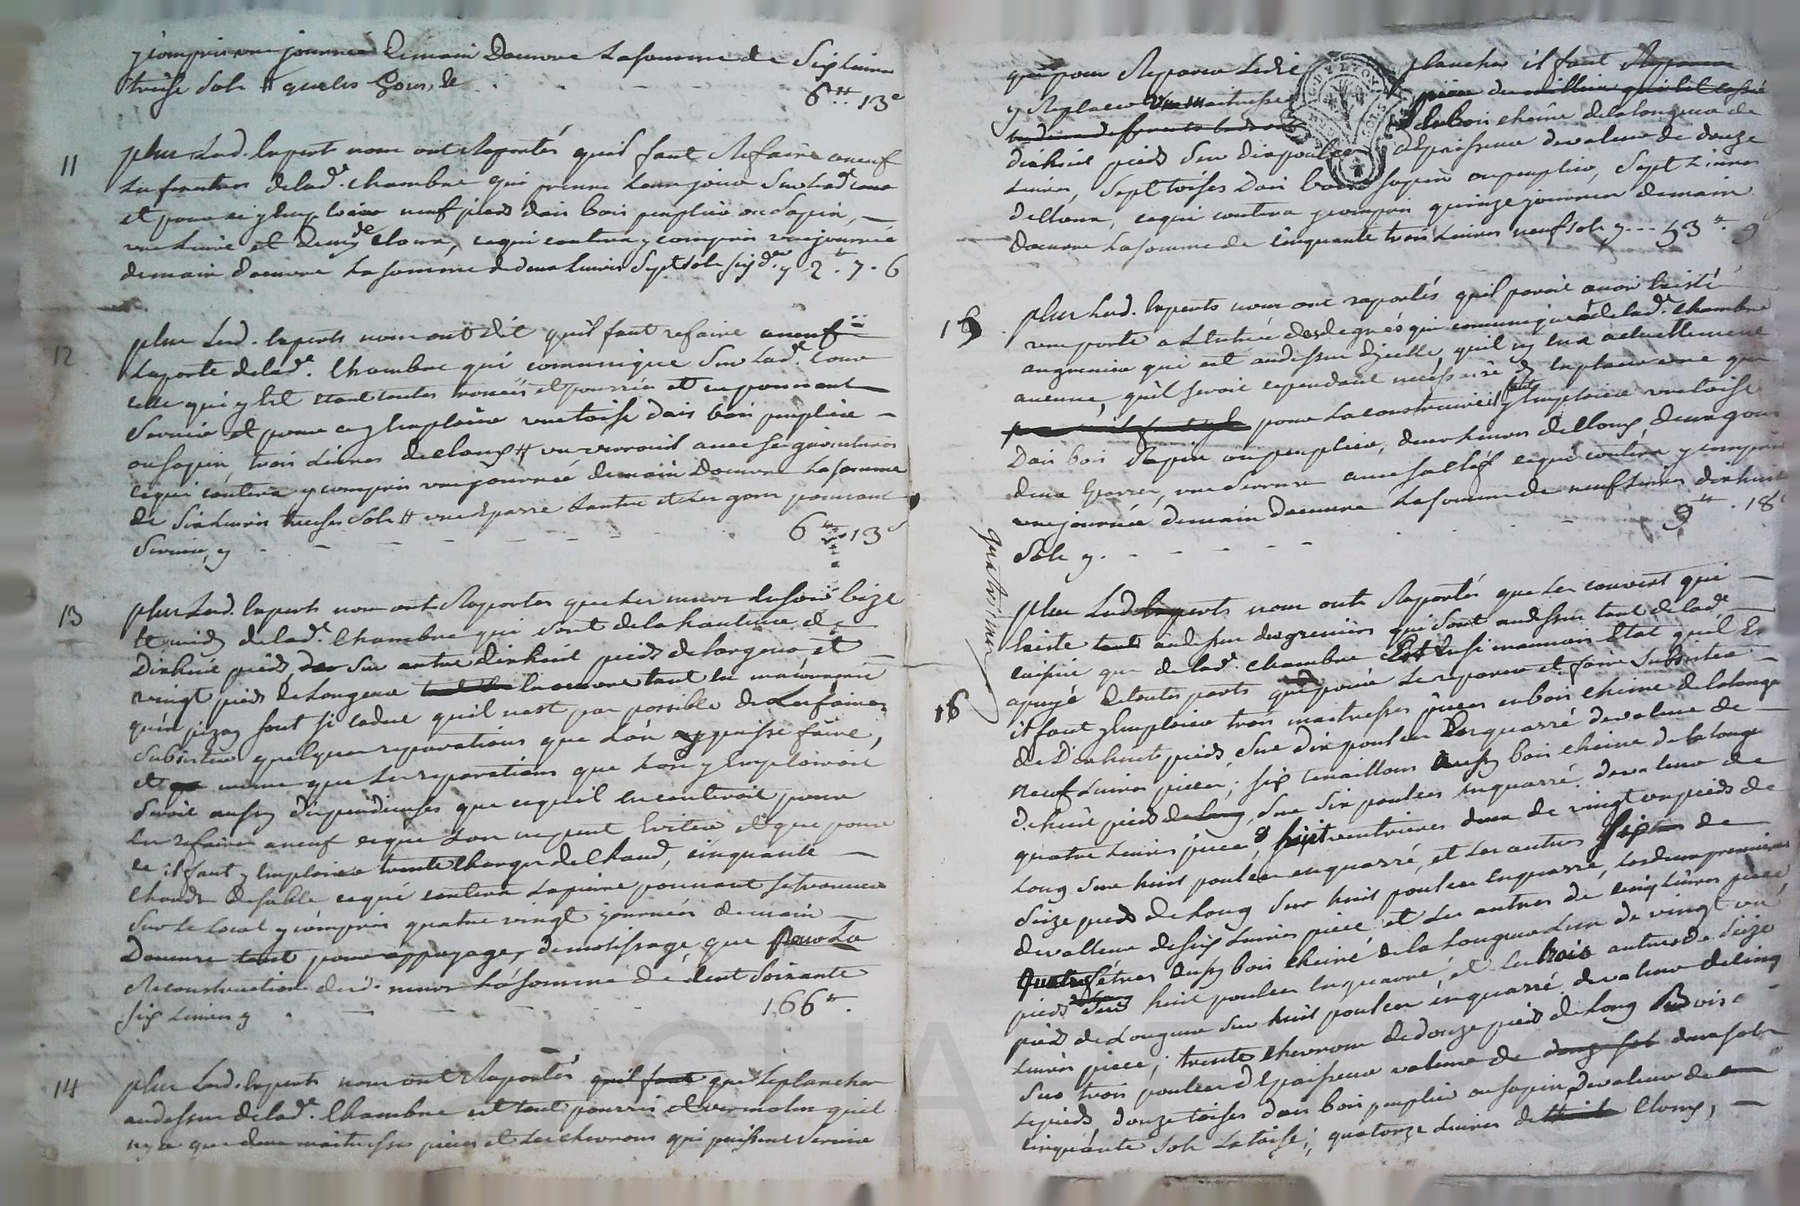 y compris une journée demain doeuvre la somme de six livres
treise sols
6 ll 13 s
11
plus lesd. experts nous ont raportés quil faut refaire aneuf
la fenetres delad.e chambre qui prenne leur jour sur lad. cour
et pour ce y employer neuf pieds dais bois peuplier ou sapin,
une livre et demy de cloux, cequi coutera y compris une journée
demain doeuvre la somme de deux livres sept sols six d. y 2 . 7 . 6
12
plus lesd. experts nous ont dit quil faut refaire aneuf
la porte delad.e chambre qui communique sur lad.e cour
celle qui y est etant toutes pourrie et ne pouvant
servir et pour ce y employer une toise dais bois peuplier
ou sapin, trois livres de cloux un verrouil avec
cequi coutera y compris une journée demain doeuvre la somme
de six livres treises sols une eparre l'autre et les gons pouvant
servir, y
6 ll 13 s
13
plus lesd. experts nous ont raportés que les murs du soir bize
et midy delad.e chambre qui sont de la hauteur de
dixhuit pieds, sur autre dixhuit pieds de largeur et
vingt pieds de longeur encorre tant en maconnerie
quen pizay sont si caduc quil nest pas possible de les faire
subsister quelques reparations que lon y puisse faire,
et meme que les reparations que lon y emploiroit
seroit aussy dispendieuses que cequil en couteroit pour
les refaire aneuf ceque lon ne peut eviter et que pour
ce il faut y employer trente charges de chaud, cinquante
chards de sable cequi coutera la pierre pouvant se trouver
sur le local y compris quatre vingt journées demain
doeuvre tant pour appuyage, demolissage, que pour la
reconstruction desd. murs la somme de cent soixante
six livres y
166 ll.
14
plus lesd. experts nous ont raportés quil faut que le plancher
audessus delad.e chambre est tout pourris et vermolus quil
ny a que deux maitresses pieces et les chevrons qui puissent servir
que pour reparer ledit plancher il faut
y replacer une maitresse piece du millieu qui est cassé
du bois cheine de la longeur de
dixhuit pieds sur dix pouces depaisseur de valeur de douze
livres, sept toises dais bois sapin ou peuplier, sept livres
de cloux, cequi coutera y compris quinze journées demain
doeuvre la somme de cinquante trois livres neuf sols y 53 ll 9 s
15
plus lesd. experts nous ont raportés quil paroit avoir existé
une porte a lentrée des degrés qui communique a delad.e chambre
au grenier qui est audessus dycelle, quil ny en a actuellement
aucune, quil seroit cependant necessaire dy en placer une que
pour la construire il faut y employer une toise
dais bois sapin ou peuplier, deux livres de cloux, deux gons
deux eparres, une serrure avec sa clef cequi coutera y compris
une journée demain doeuvre la somme de neuf livres dixhuit
sols y.
9 ll . 18 s
quatrieme
16
plus lesd. experts nous ont raportés que les couvert qui
existe audessus des greniers qui sont audessus tant delad.e
cuisine que delad.e chambre est en si mauvais etat quil est
apuyé de toutes parts que pour le reparer et faire subsister
il faut y employer trois maitresses pieces en bois cheine de la longr
de dixhuit pieds, sur dix pouces en quarré de valeur de
neuf livres piece; six tenaillons aussy bois cheine de la longr
de huit pieds de long, sur six pouces en quarré de valeur de
quatre livres piece, huit ventrieres deux de vingt un pieds de
long sur huit pouces en quarré, et les autres six de
seize pieds de long sur huit pouces en quarré, les deux premieres
de valleur de six livres piece et les autres de cinq livres piece,
quatre fetres aussy bois cheine de la longueur lun de vingt un
pieds sur huit pouces en quarré, et les trois autres de seize
pieds de longueur sur huit pouces en quarré de valeur de cinq
livres piece; trente chevrons de douze pieds de long
sur trois pouces d'epaisseur valeur de deux sols
le pieds, douze toises dais bois peuplier ou sapin de valeur de
cinquante sols la toise; quatorze livres de cloux,